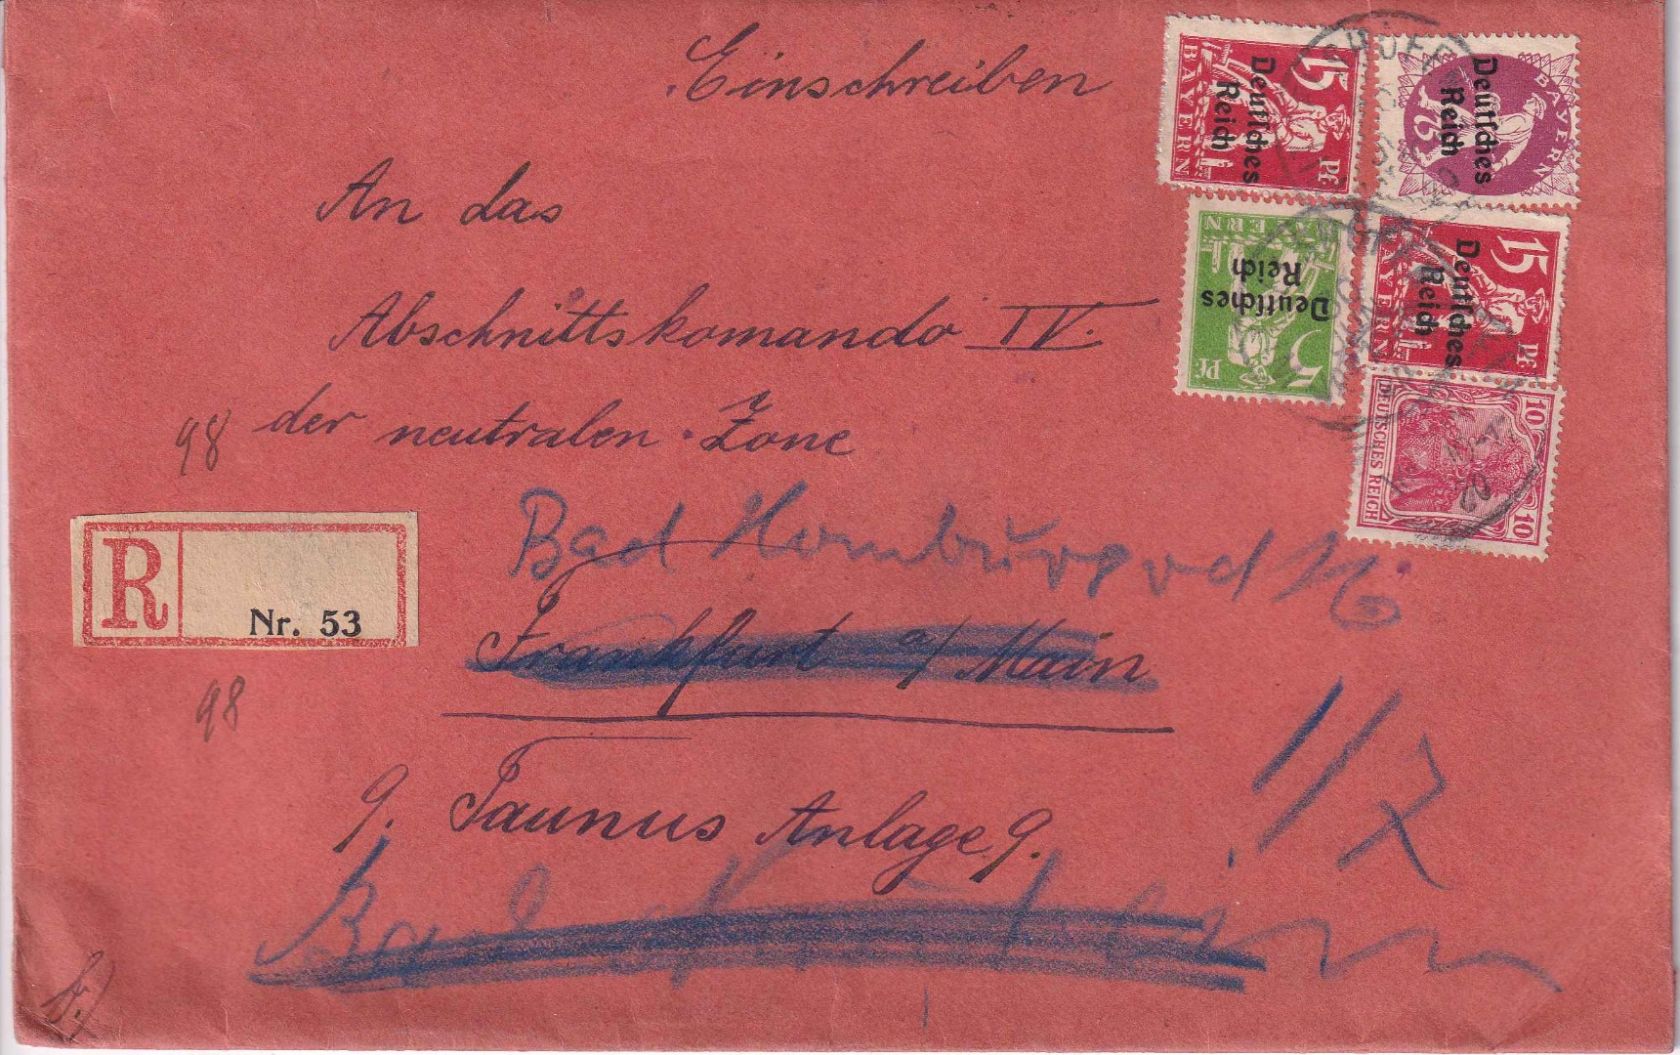 Einschreiben
An das
Abschnittskomando IV.
der neutralen Zone
98
Bad Homburg vd H
Frankfurt a/Main
R
Nr. 53
98
9. Taunus Anlage 9.
1/7
Bad
15 Pf
BAYERN
Deutsches
Reich
75
BAYERN
Deutsches
Reich
5 Pf
Deutsches
Reich
15 Pf
BAYERN
Deutsches
Reich
10 10
DEUTSCHES REICH